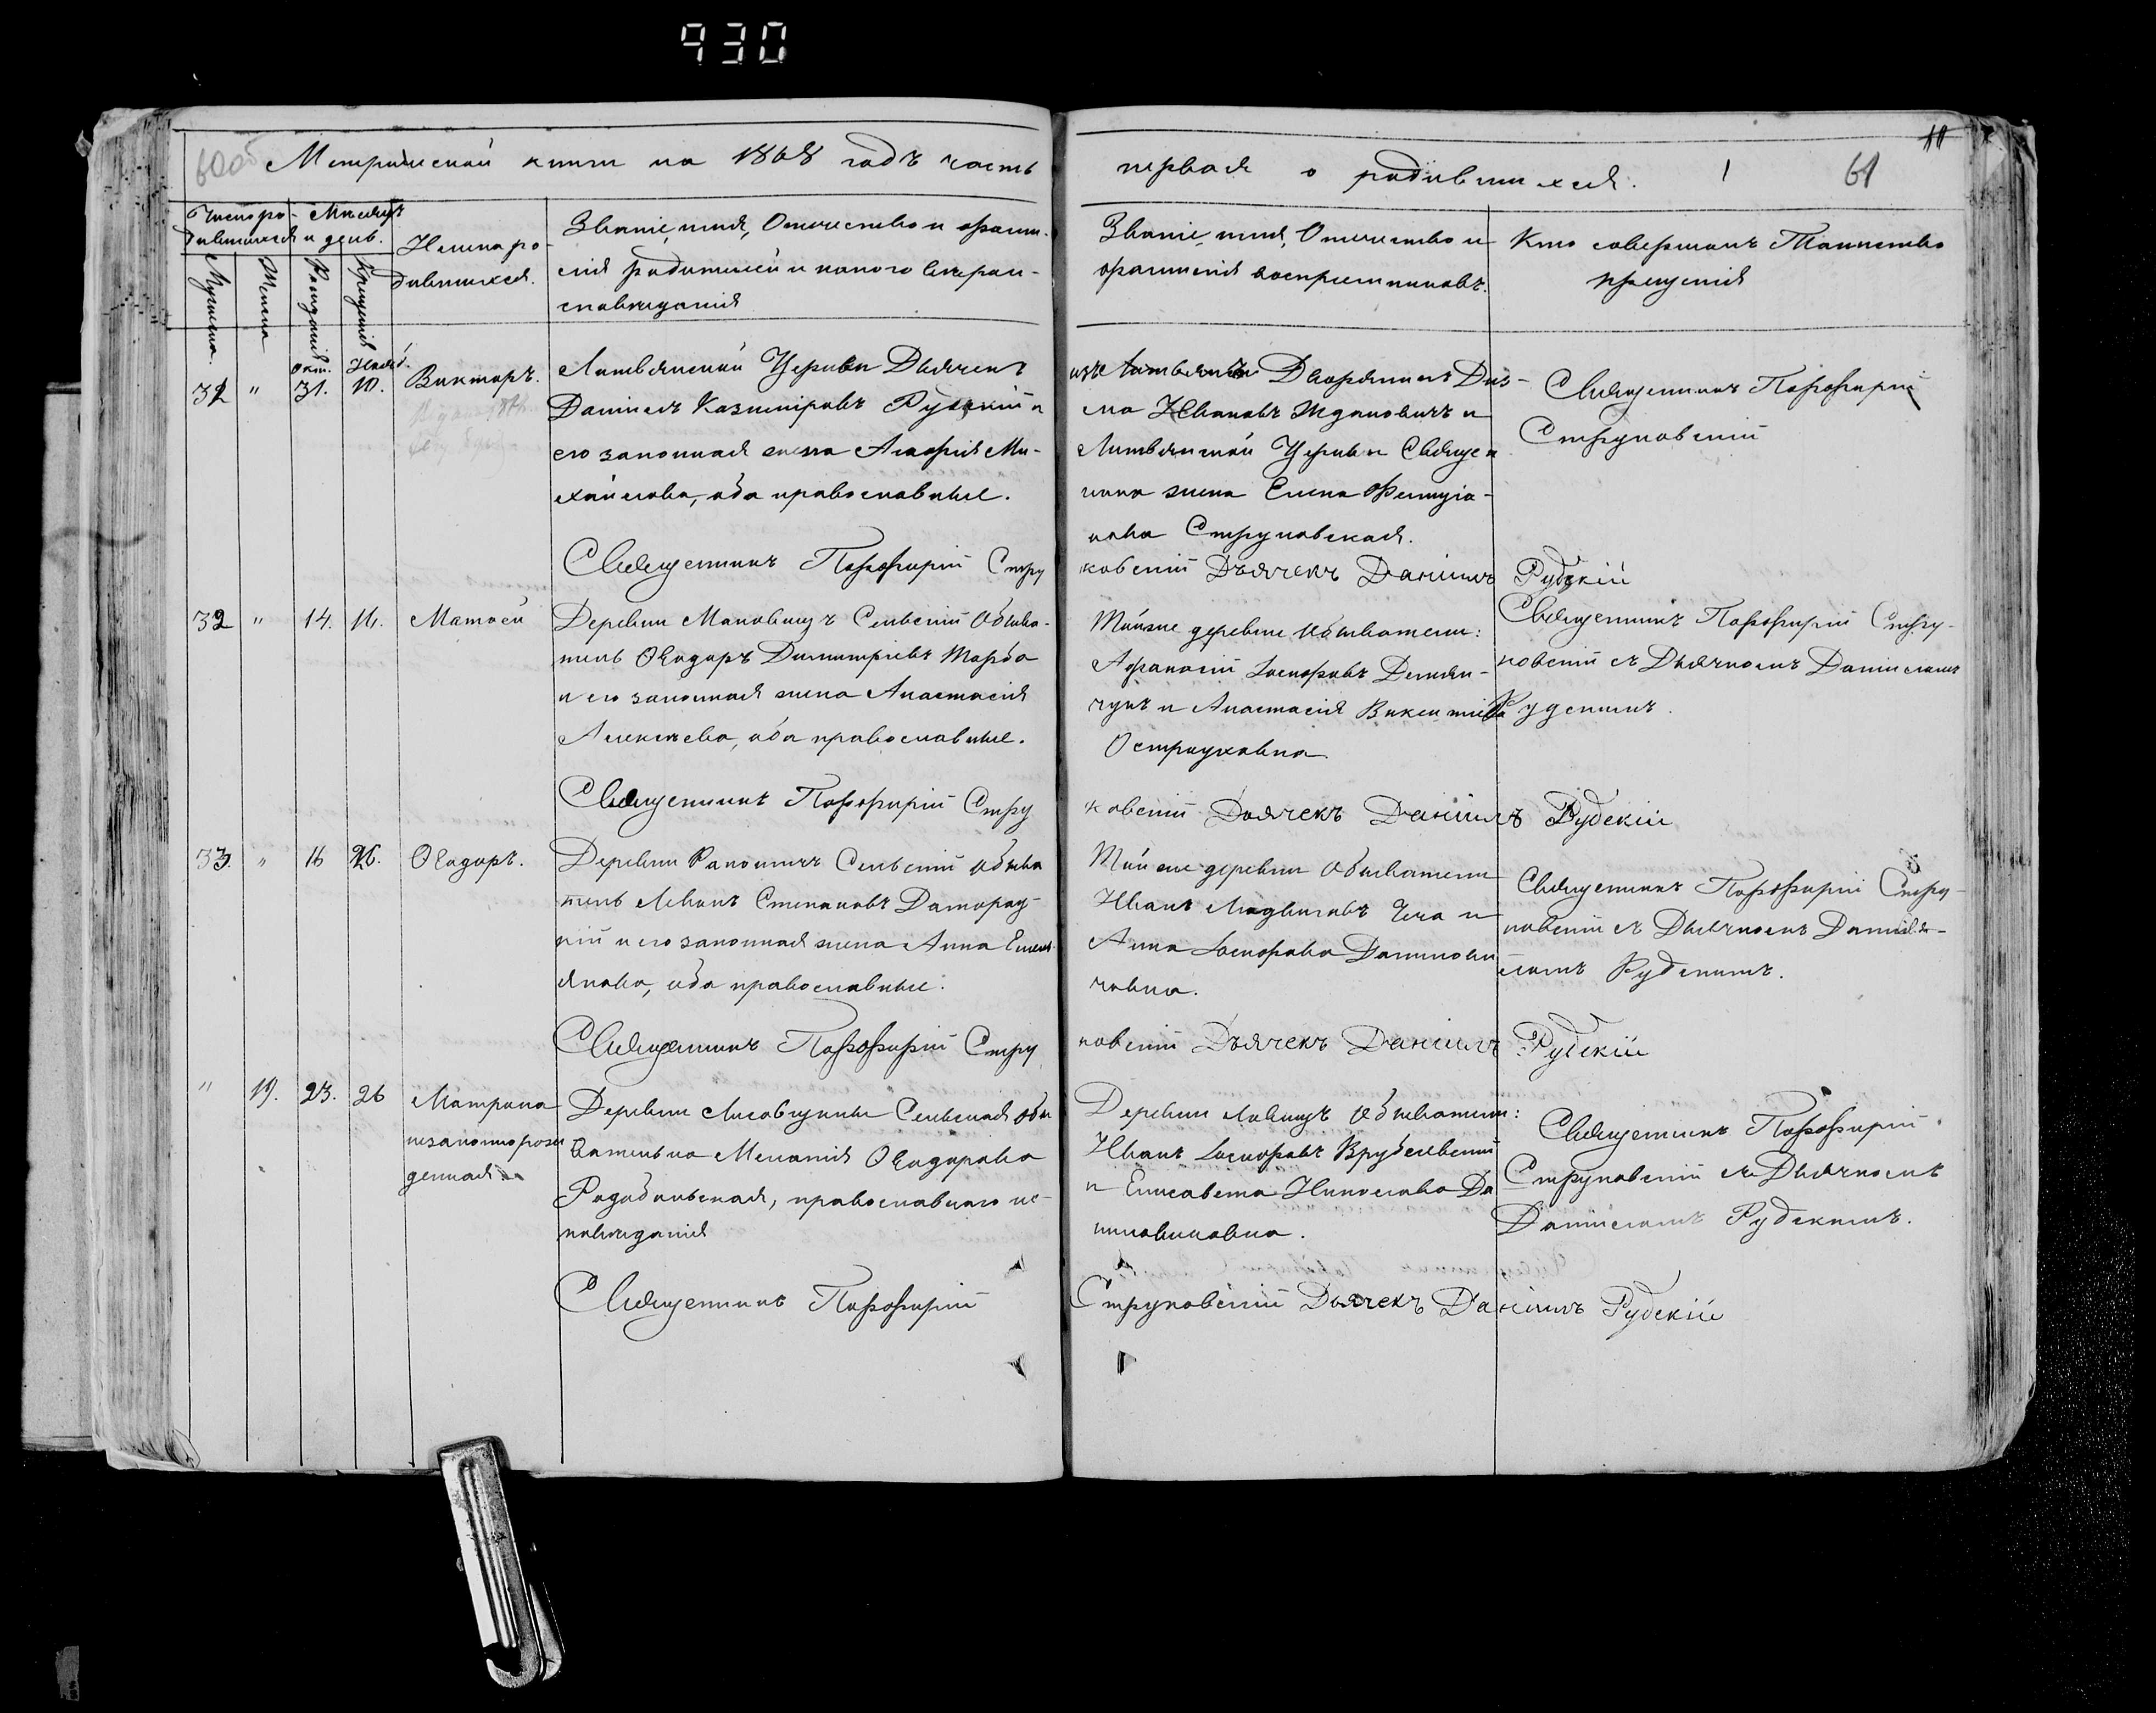 930
60об Метрической книги на 1868 годъ часть
первая о родившихся. 1 61
Число ро-
дившихся
Месяцъ
и день.
Мужеска.
Женска
Рожденія
Крещенія
Имена ро-
дившихся.
Званіе, имя, Отчество и фами-
лія родителей и какого вѣроис-
повѣданія
Званіе, имя, Отчество и
фамилія воспріемниковъ.
Кто совершалъ Таинство
крещенія
Окт. Нояб.
32 " 31. 10. Викторъ.
Литвянской Церкви Дьячекъ
Даніилъ Казиміровъ Рудскій и
его законная жена Агафія Ми-
хайлова, оба православные.
изъ Дворянинъ
Ивановъ Ждановичъ и
Литвянской Церкви Священ
ника жена Елена
нова Струковская.
Священникъ Порфирій
Струковскій
Священникъ Порфирій Стру
ковскій Дьячекъ Даніилъ Рудскій
32 " 14. 16. Матѳей
Деревни Сельскій Обыва-
тель Ѳеодоръ Димитріевъ Марба
и его законная жена Анастасія
Алексѣева, оба православные.
Тойже деревни Обыватели:
Афанасій Іосифовъ Демян-
чукъ и Анастасія Викентіева
Остроуховна
Священникъ Порфирій Стру-
ковскій съ Дьячкомъ Даніиломъ
Рудскимъ.
Священникъ Порфирій Стру
ковскій Дьячекъ Даніилъ Рудскій
33. " 16 26. Ѳеодоръ.
Деревни Сельскій Обыва
тель Степановъ
и его законная жена Анна Емель
янова, оба православные.
Той же деревни Обыватели
Иванъ Людвиговъ и
Анна Іосифова Данилови
човна.
Священникъ Порфирій Стру-
ковскій съ Дьячкомъ Даніи-
ломъ Рудскимъ.
Священникъ Порфирій Стру
ковскій Дьячекъ Даніилъ Рудскій
" 19. 23. 26 Матрона
незаконнорож
денная
Деревни Сельская Обы
вателька Меланія Ѳеодорова
православнаго ис-
повѣданія
Деревни Обыватели:
Иванъ Іосифовъ Врублевскій
и Елисавета Николаева Да
ниловиковна.
Священникъ Порфирій
Струковскій съ Дьячкомъ
Даніиломъ Рудскимъ.
Священникъ Порфирій
Струковскій Дьячекъ Даніилъ Рудскій